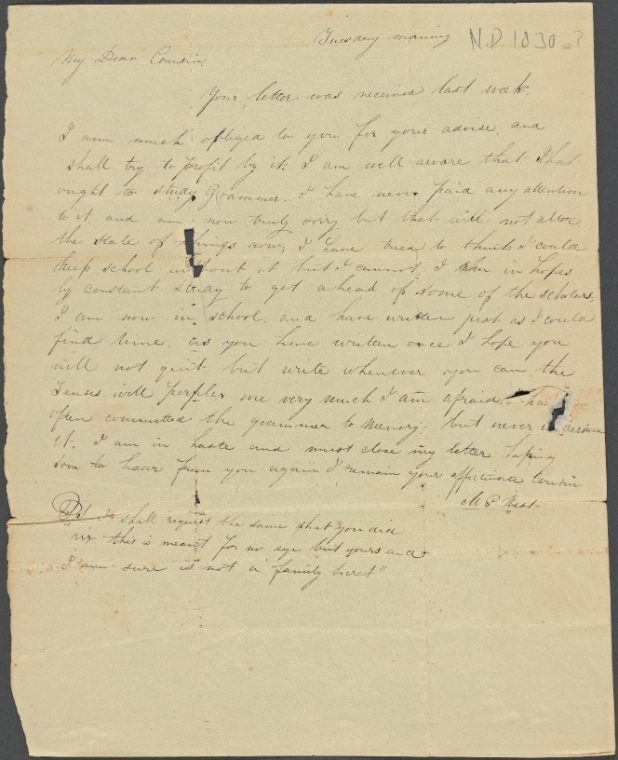 Tuesday morning N.D 1830.?
My Dear Cousin
Your letter was received last week.
I am much obliged to you for your advise, and
shall try to profit by it. I am well aware that I had
ought to study Grammer. I have never paid any attention
to it, and am now truly sorry but that will not alter
the state of things now, I have tried to think I could
keep school without it but I cannot, I am in hopes
by constant study to get ahead of some of the scholars.
I am now in school, and have written just as I could
find time. As you have written once I hope you
will not quit, but write whenever you can, the
Tenses will perplex me very much I am afraid. I ha
often committed the grammer to memory, but never
it. I am in haste and must close my letter hoping
soon to hear from you again I remain your affectionate Cousin
M E West
Ps I shall request the same that you did
viz "this is meant for no eye but yours and
I am sure is not a family secret"